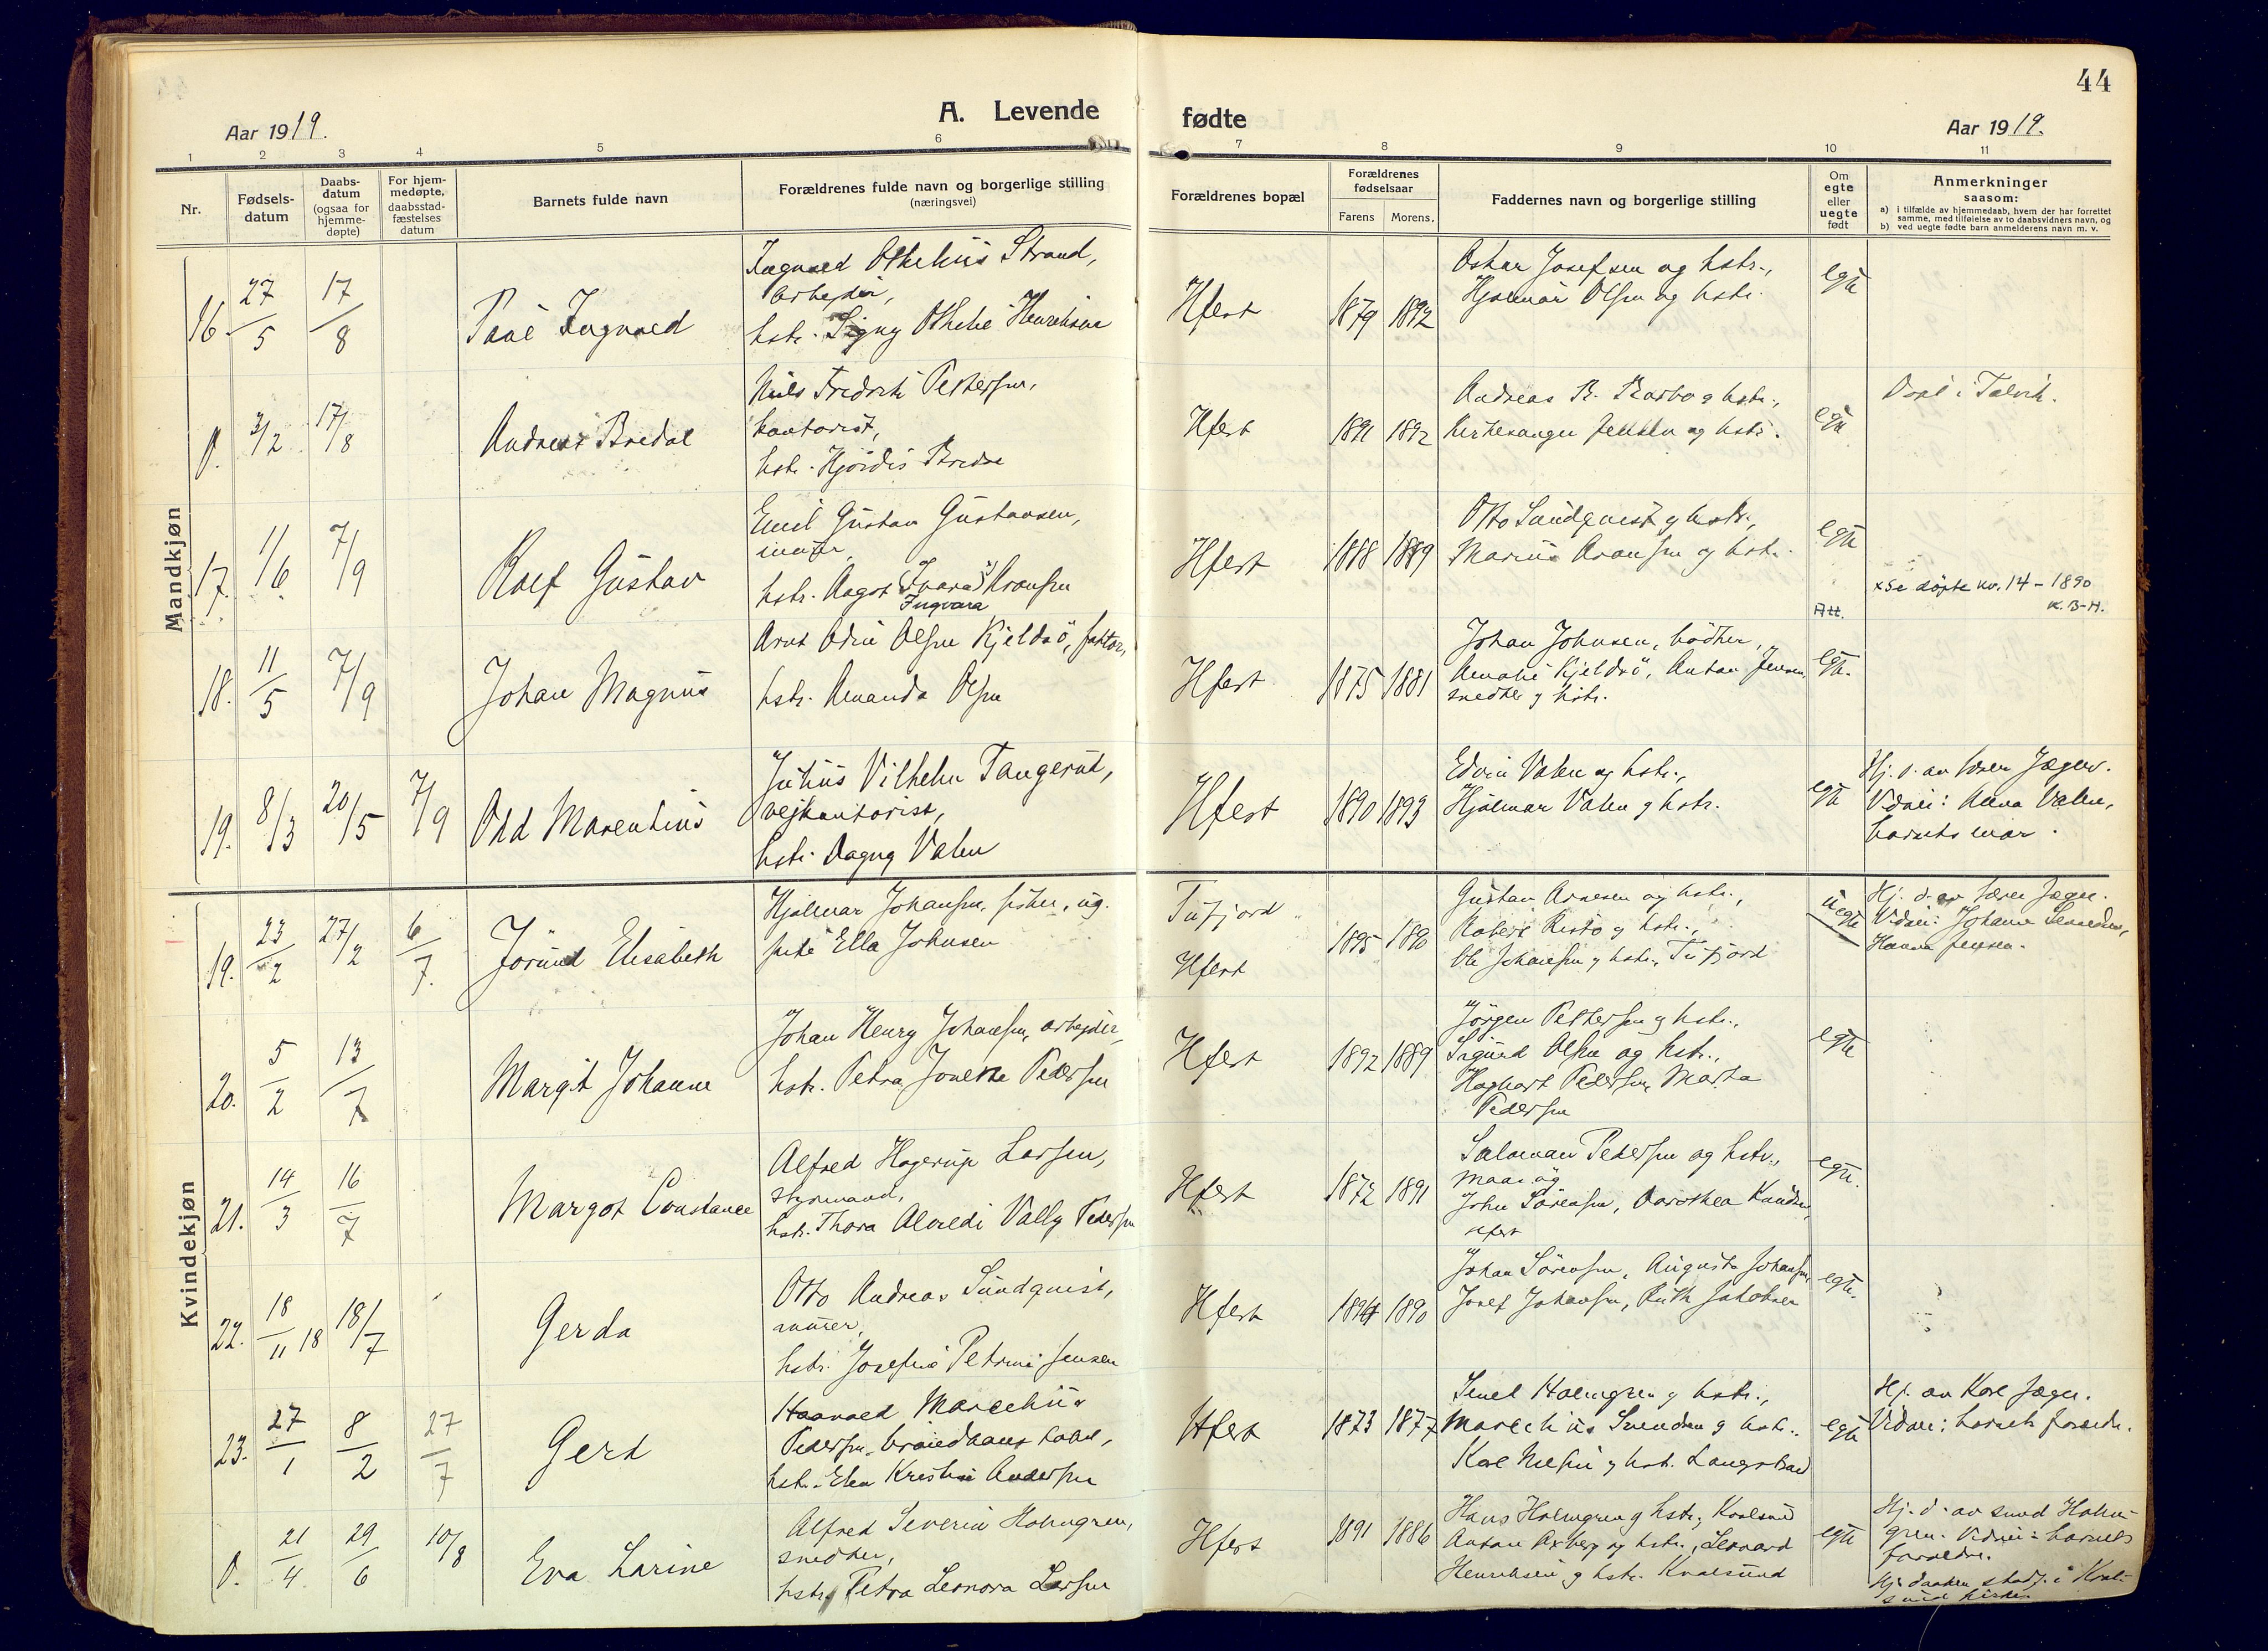 44
Aar 1919.
A. Levende fødte
Aar 1919.
1 2 3 4 5 6 7 8 9 10 11
Nr.
Fødsels-
datum
Daabs-
datum
(ogsaa for
hjemme-
døpte)
For hjem-
medøpte,
daabsstad-
fæstelses
datum
Barnets fulde navn
Forældrenes fulde navn og borgerlige stilling
(næringsvei)
Forældrenes bopæl
Forældrenes
fødselsaar
Farens Morens.
Faddernes navn og borgerlige stilling
Om
egte
eller
uegte
født
Anmerkninger
saasom:
a) i tilfælde av hjemmedaab, hvem der har forrettet
samme, med tilføielse av to daabsvidners navn, og
b) ved uegte fødte barn anmelderens navn m. v.
Mandkjøn
16. 27/5 17/8
Paul Ingvald
Ingvald Othelius Strand,
arbejder,
hstr. Signy Othelie Henriksen
Hfest 1879 1892
Oskar Josefsen og hstr.,
Hjalmar Olsen og hstr.
egte
0. 3/2 17/8
Andreas Bredal
Nils Fredrik Pettersen,
kontorist,
hstr. Hjørdis Bredal
Hfest 1891 1892
Andreas B. Barbo og hstr.,
Kirkesanger Jensen og hstr.
egte
Døpt i Talvik.
17. 11/6 7/9
Rolf Gustav
Emil Gustav Gustavsen,
murer,
hstr. Aagot Ivara Aronsen
Ingvara
Hfest 1888 1889
Otto Sundqvist og hstr.,
Marius Aronsen og hstr.
egte
Att.
x Se døpte kv. 14 - 1890
K. B-H.
18. 11/5 7/9
Johan Magnus
Arnt Odin Olsen Kjeldsö, faktor,
hstr. Amanda Olsen
Hfest 1875 1881
Johan Johnsen, bødker,
Amalie Kjeldsö, Anton Jensen,
snedker og hstr.
egte.
19. 8/3 20/5 7/9
Odd Marentius
Julius Vilhelm Tangerud,
vejkontorist,
hstr. Dagny Valen
Hfest 1890 1893
Edvin Valen og hstr.,
Hjalmar Valen og hstr.
egte
Hj. d. av lærer Jæger.
Vidner: Anna Valen,
barnets mor.
Kvindekjøn
19. 23/2 27/2 6/7
Jorund Elisabeth
Hjalmar Johansen, fisker, ug.
pike Ella Johnsen
Tufjord
Hfest
1895 1890
Gustav Arnesen og hstr.,
Robert Risto og hstr.,
Ole Johansen og hstr., Tufjord
uegte
Hj. d. av lærer Jæger.
Vidner: Johanne
Hanna Jensen.
20. 5/2 13/7
Margit Johanne
Johan Henry Johansen, arbejder,
hstr. Petra Jonette Pedersen
Hfest 1892 1889
Jörgen Pettersen og hstr.,
Sigurd Olsen og hstr.,
Hagbart Pedersen, Marta
Pedersen
egte
21. 14/3 16/7
Margot Constance
Alfred Hagerup Larsen,
styrmand,
hstr. Thora Alvildi Vally Pedersen
Hfest 1872 1891
Salomon Pedersen og hstr.,
Maasøy
John Sörensen, Dorothea Knudsen,
Hfest
egte.
22. 18/11 18 18/7
Gerda
Otto Andreas Sundquist,
murer,
hstr. Josefine Petrine Jensen
Hfest 1894 1890
Johan Sörensen, Augusta Johansen,
Josef Johansen, Ruth Jakobsen
egte.
23. 27/1 8/2 27/7
Gerd
Haavald Marcelius
Pedersen, brandkonstabel,
hstr. Elen Kristine Andersen
Hfest 1873 1877
Emel Holmgren og hstr.,
Marelius Svendsen og hstr.,
Karl Nilsen og hstr. Langstrand
egte
Hj. av Karl Jæger.
Vidner: barnets forældre.
0. 21/4 29/6 10/8
Eva Larine
Alfred Severin Holmgren,
snedker,
hstr. Petra Leonora Larsen
Hfest 1891 1886
Hans Holmgren og hstr., Kvalsund
Anton Axberg og hstr., Leonard
Henriksen og hstr. Kvalsund
egte
Hj. d. av smed Holm-
gren. Vidner: barnets
forældre.
Hj. daaben stadf. i Kval-
sund kirke.